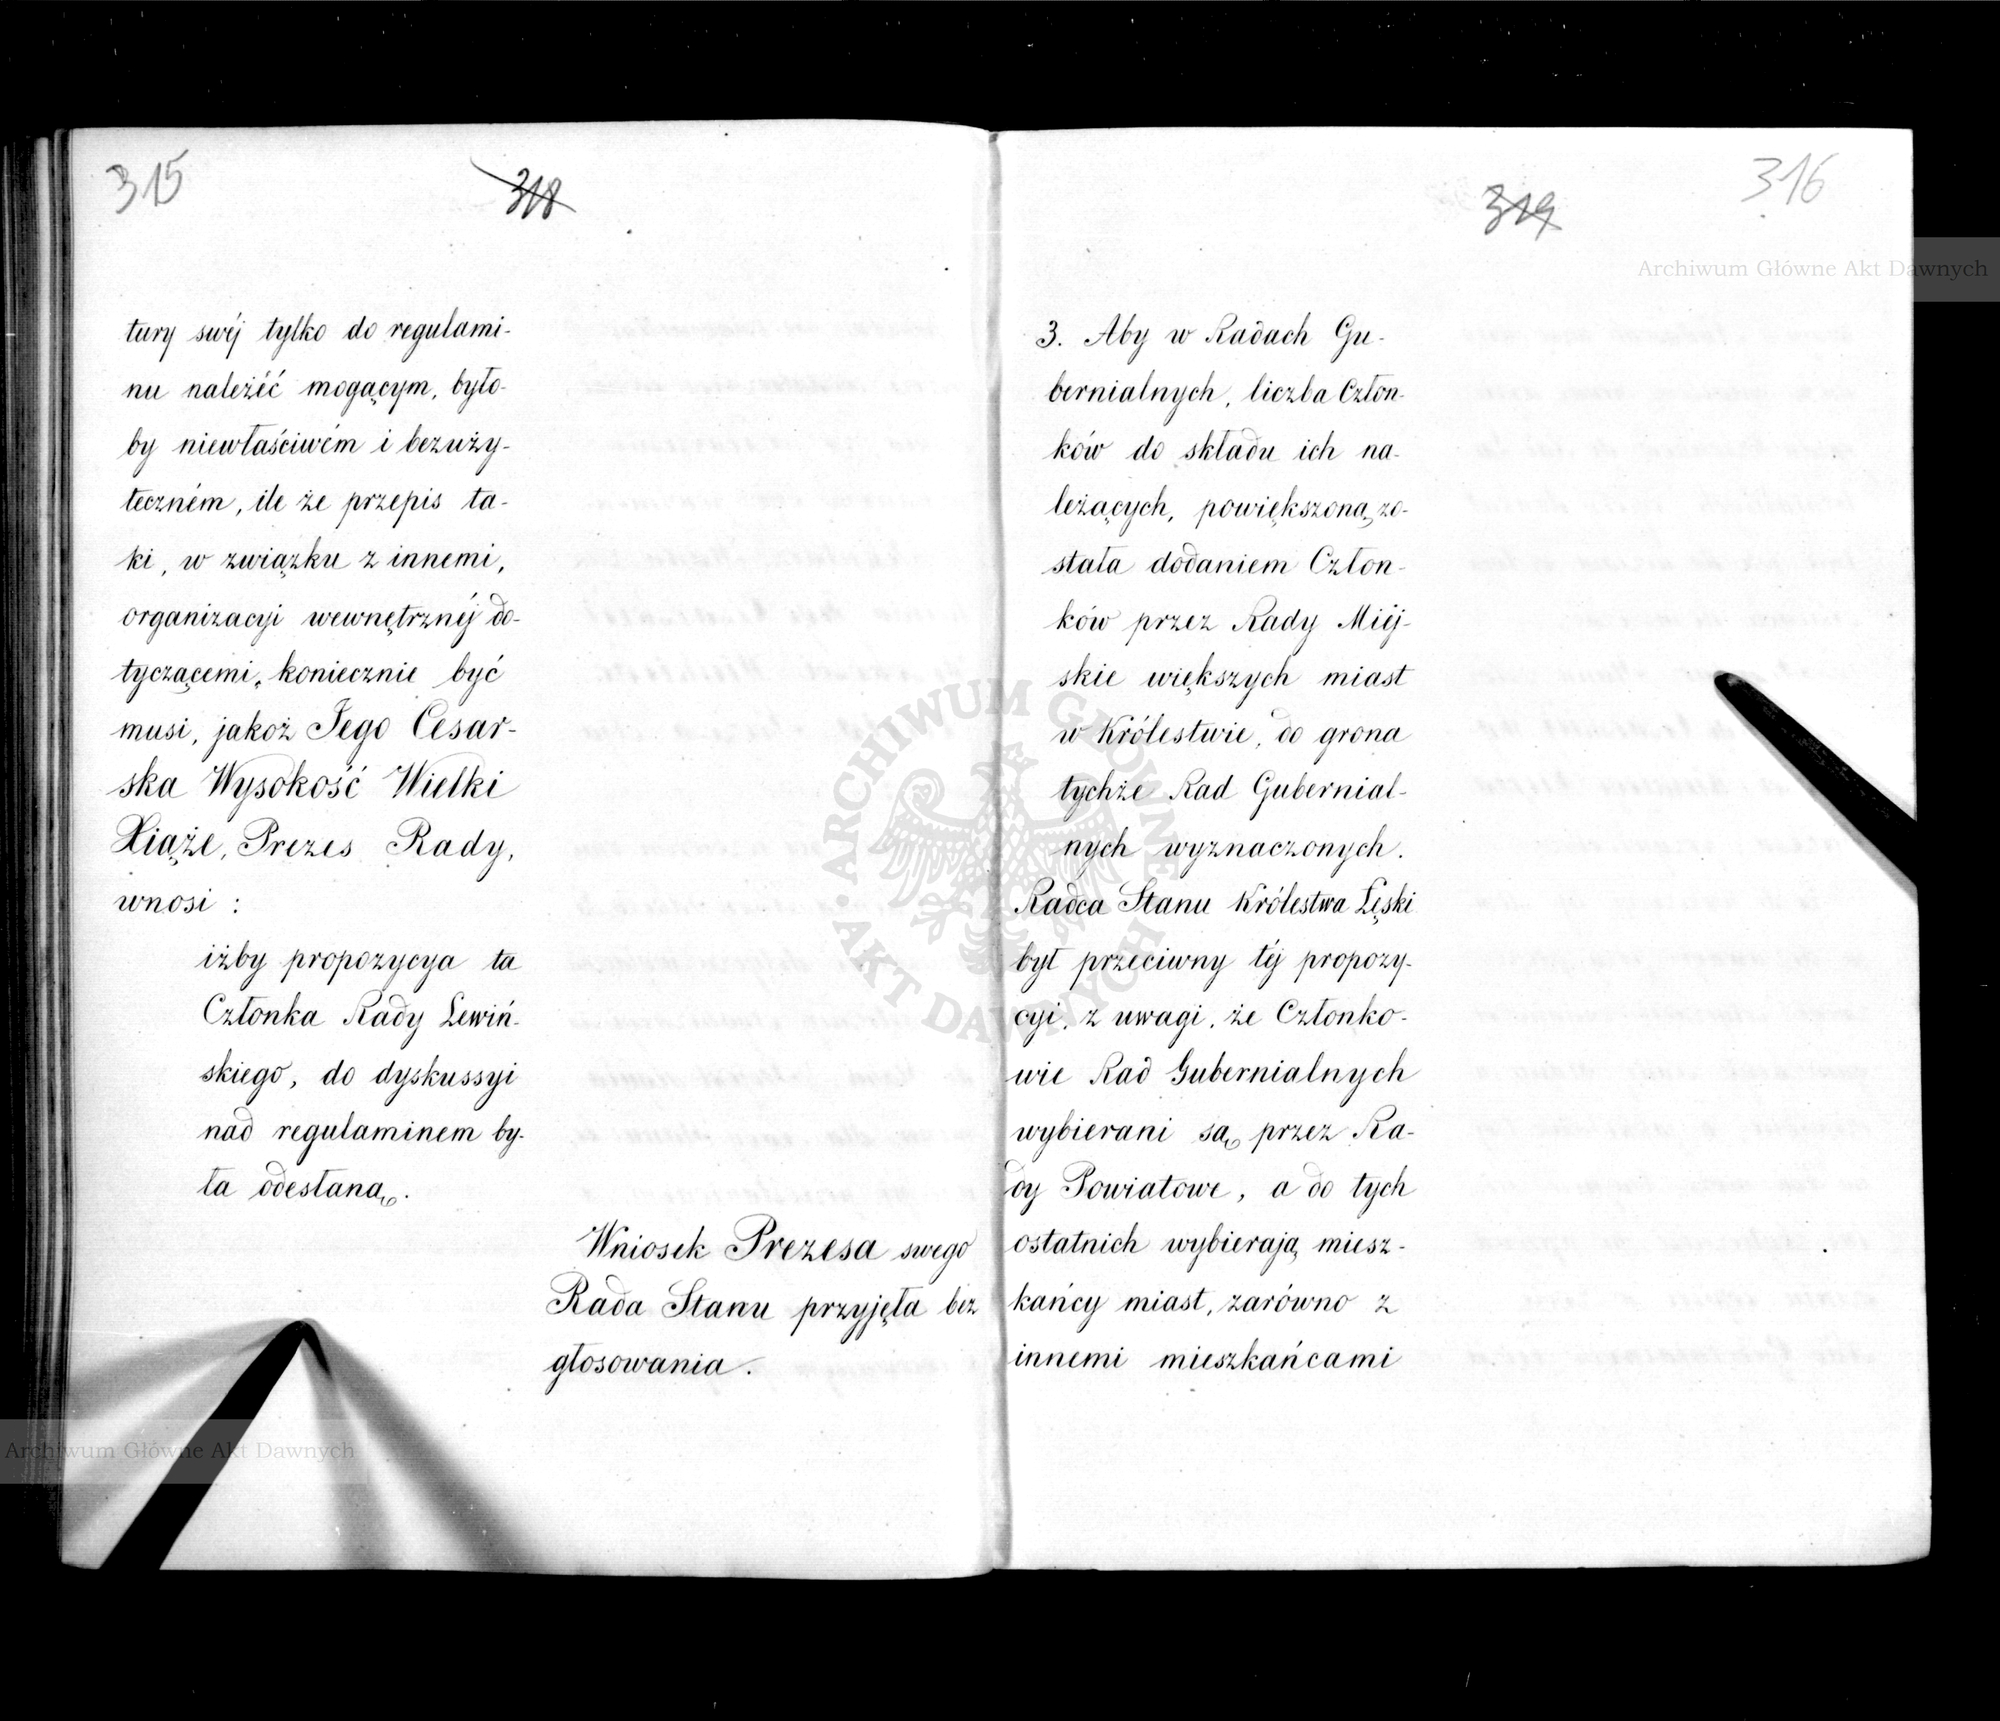 315
318
tury swéj tylko do regulami-
nu należéć mogącym, było-
by niewłaściwém i bezuży-
teczném, ile że przepis ta-
ki, w związku z innemi,
organizacyi wewnętrznéj do-
tyczącemi, koniecznie być
musi, jakoż Jego Cesar-
ska Wysokość Wielki
Xiąże, Prezes Rady,
wnosi :
iżby propozycya ta
Członka Rady Lewiń-
skiego, do dyskussyi
nad regulaminem by-
ła odesłaną.
Wniosek Prezesa swego
Rada Stanu przyjęła bez
głosowania.
319
316
Archiwum Główne Akt Dawnych
3. Aby w Radach Gu-
bernialnych, liczba Człon-
ków do składu ich na-
leżących, powiększoną zo-
stała dodaniem Człon-
ków przez Rady Miéj-
skie większych miast
w Królestwie, do grona
tychże Rad Gubernial-
nych wyznaczonych.
Radca Stanu Królestwa Łęski
był przeciwny téj propozy-
cyi, z uwagi, że Członko-
wie Rad Gubernialnych
wybierani są przez Ra-
dy Powiatowe, a do tych
ostatnich wybierają miesz-
kańcy miast, zarówno z
innemi mieszkańcami
ARCHIWUM GŁÓWNE AKT DAWNYCH
Archiwum Główne Akt Dawnych